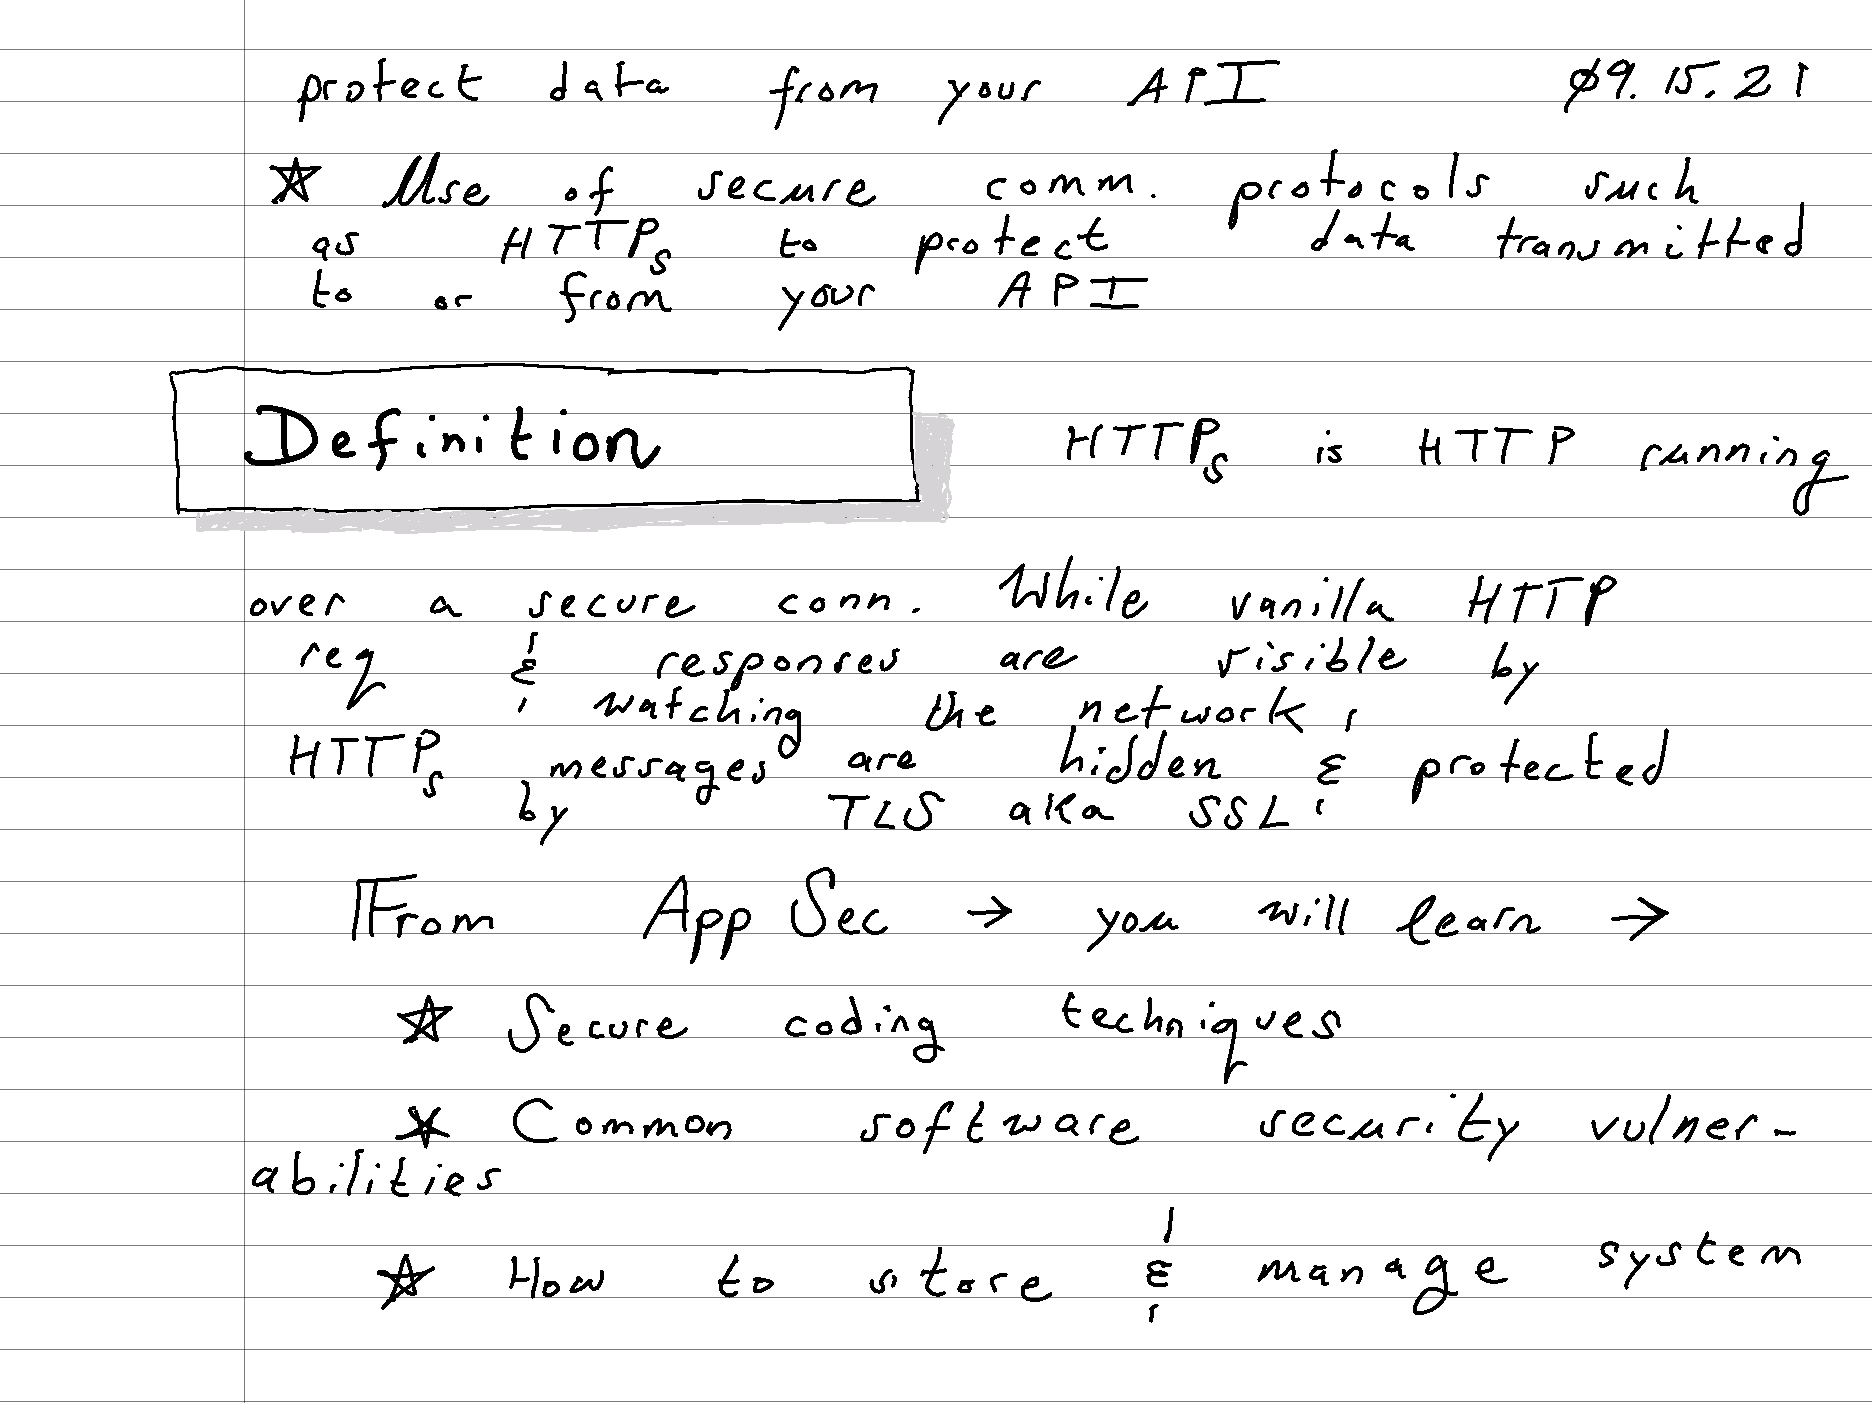 protect data from your API 09.15.21
☆ Use of secure comm. protocols such
as HTTPs to protect data transmitted
to or from your API
Definition HTTPs is HTTP running
over a secure conn. While vanilla HTTP
req & responses are visible by
watching the network,
HTTPs messages are hidden & protected
by TLS aka SSL
From App Sec → you will learn →
☆ Secure coding techniques
☆ Common software security vulner-
abilities
☆ How to store & manage system